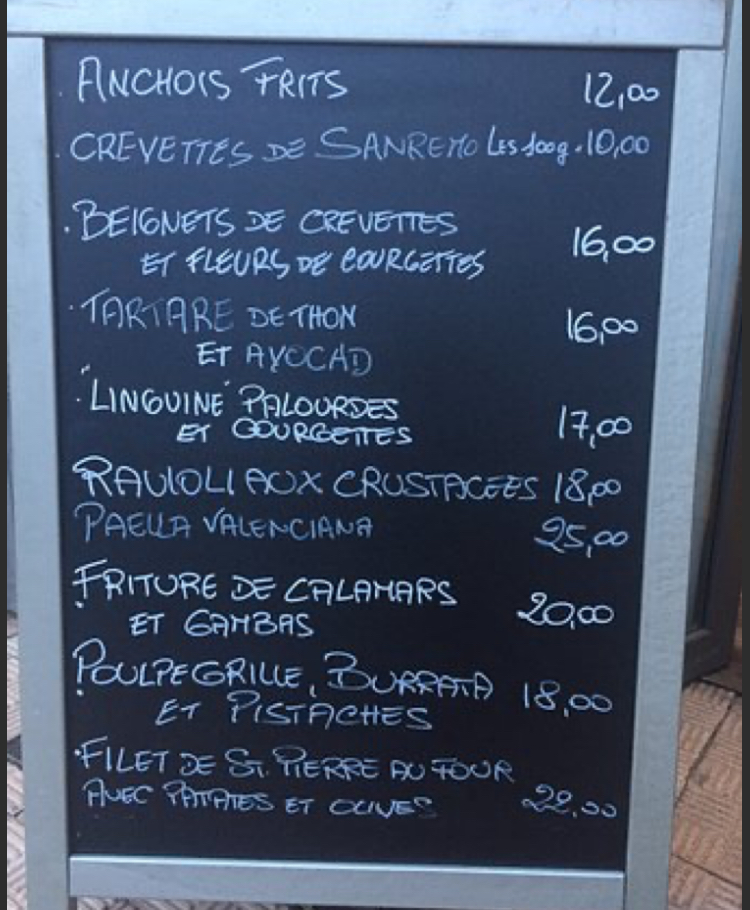 . ANCHOIS FRITS 12,00
. CREVETTES DE SANREMO Les 100g. 10,00
. BEIGNETS DE CREVETTES
ET FLEURS DE COURGETTES 16,00
. TARTARE DE THON 16,00
ET AVOCAD
. "LINGUINE" PALOURDES
ET COURGETTES 17,00
RAVIOLI AUX CRUSTACEES 18,00
PAELLA VALENCIANA 25,00
. FRITURE DE CALAMARS
ET GAMBAS 20,00
. POULPE GRILLE, BURRATA 18,00
ET PISTACHES
. FILET DE St. PIERRE AU FOUR
AVEC PATATES ET OLIVES 22,00